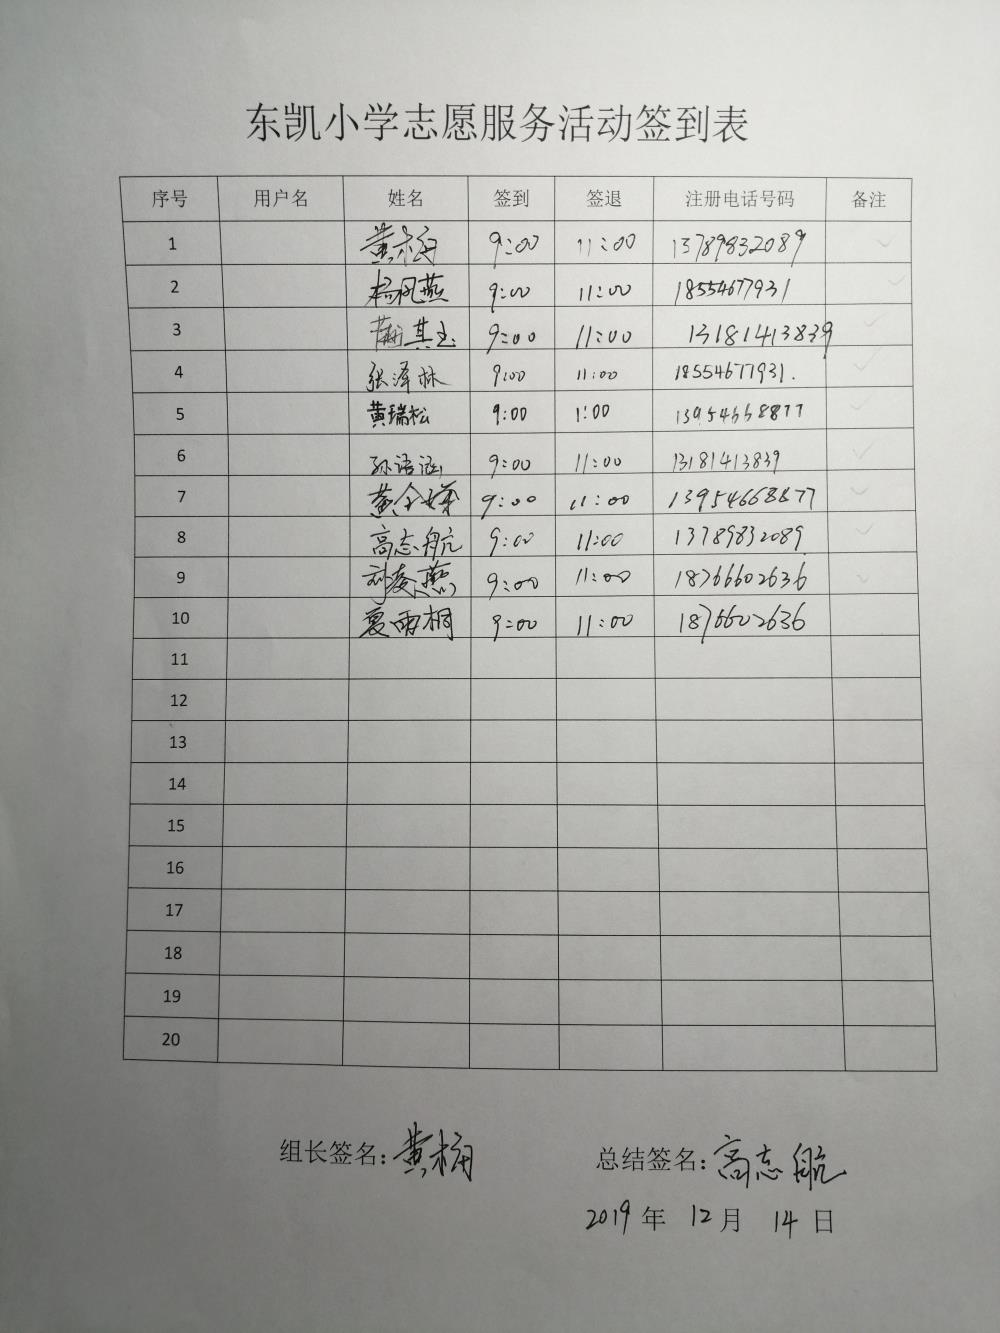 东凯小学志愿服务活动签到表
序号 用户名 姓名 签到 签退 注册电话号码 备注
1 黄梅 9:00 11:00 13789832089
2 杨凤燕 9:00 11:00 18554677931
3 其玉 9:00 11:00 13181413839
4 张泽林 9:00 11:00 18554677931.
5 黄瑞松 9:00 1:00 13954668877
6 孙语涵 9:00 11:00 13181413839
7 黄全 9:00 11:00 13954668877
8 高志航 9:00 11:00 13789832089
9 刘凌燕 9:00 11:00 18766602636
10 夏雨桐 9:00 11:00 18766602636
11
12
13
14
15
16
17
18
19
20
组长签名: 黄梅 总结签名: 高志航
2019 年 12 月 14 日